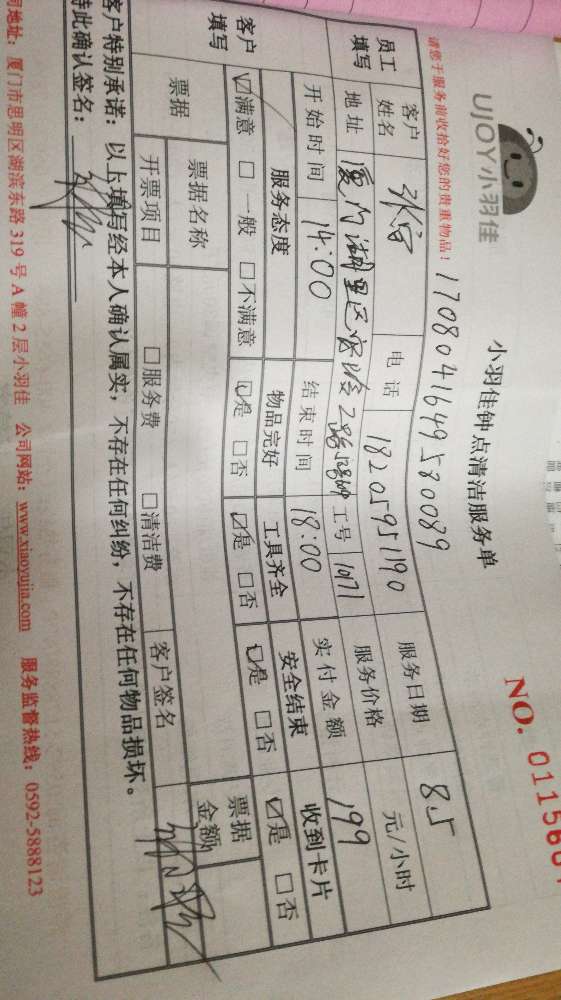 UJOY小羽佳
小羽佳钟点清洁服务单
NO. 01156
请您于服务前收拾好您的贵重物品！
1708041649580089
员工填写 客户姓名 电话 18205951190 服务日期 8.5
地址 工号 1071 服务价格 元/小时
开始时间 14:00 结束时间 18:00 实付金额 199
客户填写 服务态度 物品完好 工具齐全 安全结束 收到卡片
☑满意 □一般 □不满意 ☑是 □否 ☑是 □否 ☑是 □否 ☑是 □否
票据 票据名称 票据金额
开票项目 □服务费 □清洁费 客户签名
客户特别承诺：以上填写经本人确认属实，不存在任何纠纷，不存在任何物品损坏。
特此确认签名：
司地址：厦门市思明区湖滨东路319号A幢2层小羽佳 公司网站：www.xiaoyujia.com 服务监督热线：0592-5888123